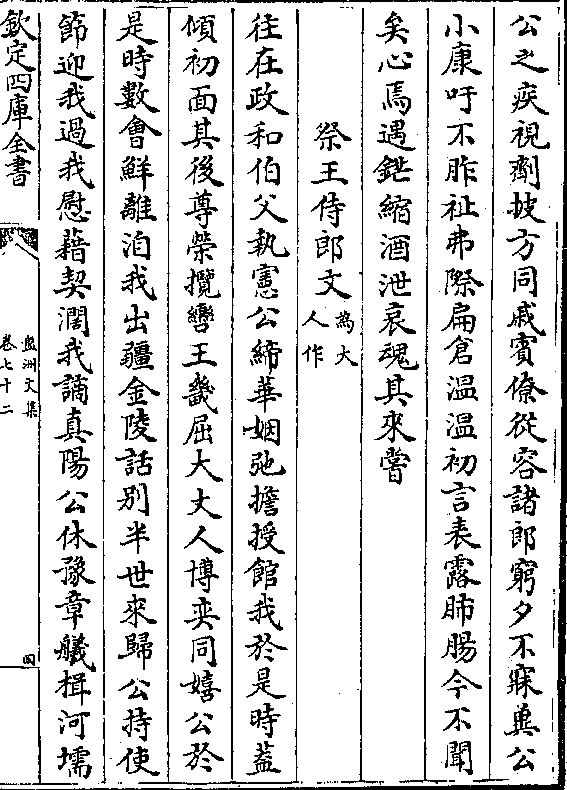 公之疾視劑披方同戚賓僚從容諸郎窮夕不寐兾公
小康吁不胙祉弗際扁倉溫溫初言表露肺腸今不聞
矣心焉遇鉏縮酒泄哀魂其來嘗
祭王侍郎文為大人作
往在政和伯父執憲公締華姻弛擔授館我於是時蓋
傾初面其後尊榮攬轡王畿屈大丈人博奕同嬉公於
是時數會鮮離洎我出疆金陵話別半世來歸公持使
節迎我過我慰藉契濶我謫真陽公休豫章艤楫河壖
欽定四庫全書
盤洲文集
卷七十二
四